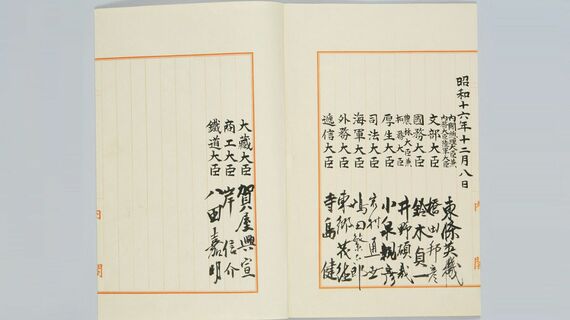 昭和十六年十二月八日
内閣總理大臣兼
内務大臣陸軍大臣 東條英機
文部大臣 橋田邦彦
國務大臣 鈴木貞一
農林大臣兼
拓務大臣 井野碩哉
厚生大臣 小泉親彦
司法大臣 岩村通世
海軍大臣 嶋田繁太郎
外務大臣 東郷茂徳
遞信大臣 寺島健
内閣
大藏大臣 賀屋興宣
商工大臣 岸信介
鐵道大臣 八田嘉明